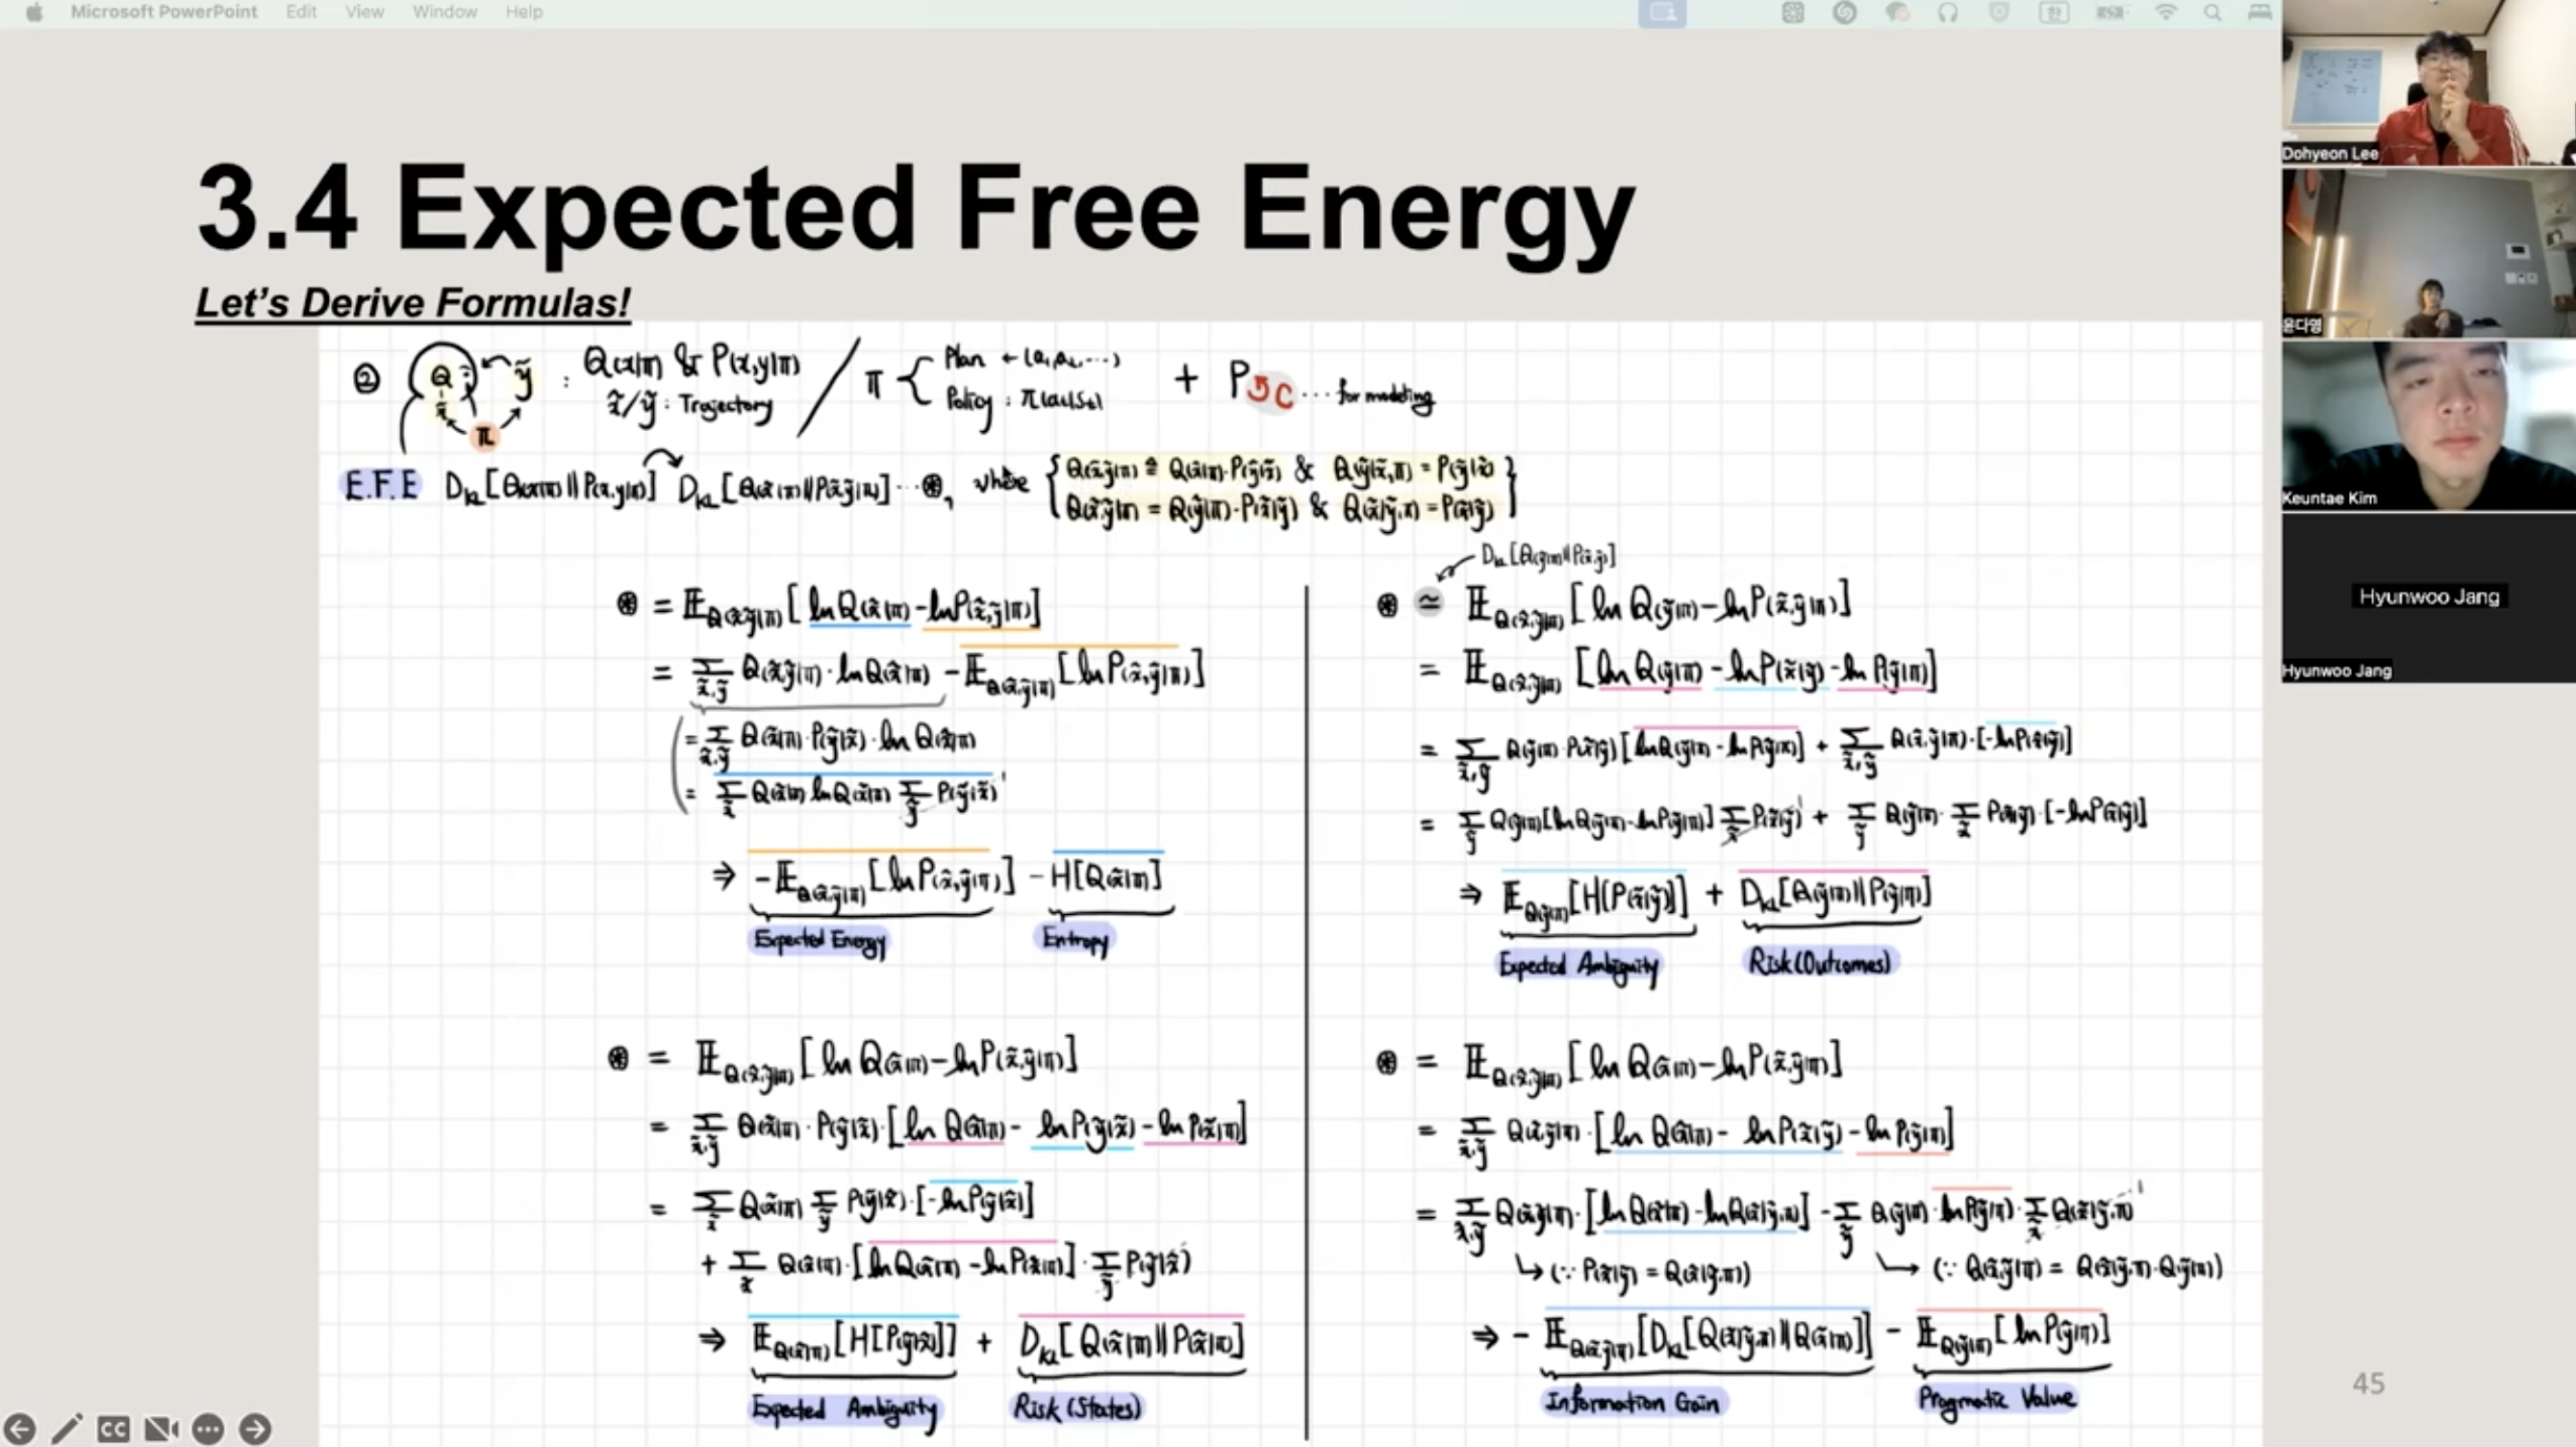 Microsoft PowerPoint Edit View Window Help
3.4 Expected Free Energy
Let's Derive Formulas!
② Q x̃ ỹ π : Q(x|π) & P(x,y|π) / π { Plan ← (a₁,a₂,···) + P ↺ C ··· for modeling
x̃/ỹ : Trajectory Policy : π(aₜ|Sₜ)
E.F.E D_KL[Q(x|π)||P(x,y|π)] D_KL[Q(x̃|π)||P(x̃,ỹ|π)] ··· ⊛, where { Q(x̃,ỹ|π) ≜ Q(x̃|π)·P(ỹ|x̃) & Q(ỹ|x̃,π) = P(ỹ|x̃)
Q(x̃,ỹ|π) = Q(ỹ|π)·P(x̃|ỹ) & Q(x̃|ỹ,π) = P(x̃|ỹ) }
⊛ = 𝔼_Q(x̃,ỹ|π) [ ln Q(x̃|π) - ln P(x̃,ỹ|π) ]
= Σ_x̃,ỹ Q(x̃,ỹ|π) · ln Q(x̃|π) - 𝔼_Q(x̃,ỹ|π) [ ln P(x̃,ỹ|π) ]
= Σ_x̃,ỹ Q(x̃|π)·P(ỹ|x̃) · ln Q(x̃|π)
= Σ_x̃ Q(x̃|π) ln Q(x̃|π) Σ_ỹ P(ỹ|x̃) 1
⇒ - 𝔼_Q(x̃,ỹ|π) [ ln P(x̃,ỹ|π) ] - H[Q(x̃|π)]
Expected Energy Entropy
D_KL[Q(ỹ|π)||P(x̃,ỹ)]
⊛ ≃ 𝔼_Q(x̃,ỹ|π) [ ln Q(ỹ|π) - ln P(x̃,ỹ|π) ]
= 𝔼_Q(x̃,ỹ|π) [ ln Q(ỹ|π) - ln P(x̃|ỹ) - ln P(ỹ|π) ]
= Σ_x̃,ỹ Q(ỹ|π)·P(x̃|ỹ) [ ln Q(ỹ|π) - ln P(ỹ|π) ] + Σ_x̃,ỹ Q(x̃,ỹ|π)·[ -ln P(x̃|ỹ) ]
= Σ_ỹ Q(ỹ|π) [ ln Q(ỹ|π) - ln P(ỹ|π) ] Σ_x̃ P(x̃|ỹ) 1 + Σ_ỹ Q(ỹ|π) · Σ_x̃ P(x̃|ỹ) · [ -ln P(x̃|ỹ) ]
⇒ 𝔼_Q(ỹ|π) [ H[P(x̃|ỹ)] ] + D_KL[Q(ỹ|π)||P(ỹ|π)]
Expected Ambiguity Risk (Outcomes)
⊛ = 𝔼_Q(x̃,ỹ|π) [ ln Q(x̃|π) - ln P(x̃,ỹ|π) ]
= Σ_x̃,ỹ Q(x̃|π) · P(ỹ|x̃) · [ ln Q(x̃|π) - ln P(ỹ|x̃) - ln P(x̃|π) ]
= Σ_x̃ Q(x̃|π) Σ_ỹ P(ỹ|x̃) · [ -ln P(ỹ|x̃) ]
+ Σ_x̃ Q(x̃|π) · [ ln Q(x̃|π) - ln P(x̃|π) ] · Σ_ỹ P(ỹ|x̃)
⇒ 𝔼_Q(x̃|π) [ H[P(ỹ|x̃)] ] + D_KL[ Q(x̃|π) || P(x̃|π) ]
Expected Ambiguity Risk (States)
⊛ = 𝔼_Q(x̃,ỹ|π) [ ln Q(x̃|π) - ln P(x̃,ỹ|π) ]
= Σ_x̃,ỹ Q(x̃,ỹ|π) · [ ln Q(x̃|π) - ln P(x̃|ỹ) - ln P(ỹ|π) ]
= Σ_x̃,ỹ Q(x̃,ỹ|π) · [ ln Q(x̃|π) - ln Q(x̃|ỹ,π) ] - Σ_ỹ Q(ỹ|π) · ln P(ỹ|π) · Σ_x̃ Q(x̃|ỹ,π) 1
↳ (∵ P(x̃|ỹ) = Q(x̃|ỹ,π)) ↳ (∵ Q(x̃,ỹ|π) = Q(x̃|ỹ,π)·Q(ỹ|π))
⇒ - 𝔼_Q(x̃,ỹ|π) [ D_KL[ Q(x̃|ỹ,π) || Q(x̃|π) ] ] - 𝔼_Q(ỹ|π) [ ln P(ỹ|π) ]
Information Gain Pragmatic Value
45
CC
Dohyeon Lee
윤다영
Keuntae Kim
Hyunwoo Jang
Hyunwoo Jang